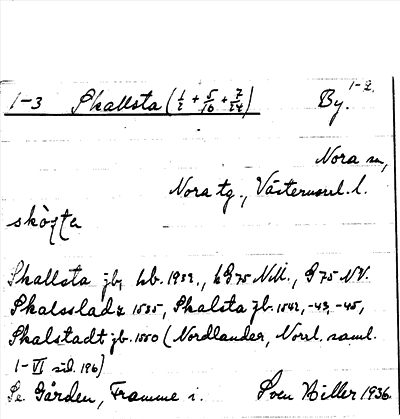 1-2.
1-3 Skallsta (1/2 + 5/16 + 7/24) By.
Nora sn,
Nora tg., Västernorrl. l.
Skallsta jb, hb. 1932., G 75 NV.
1535, Skalsta jb. 1542, -43, -45,
Skalstadt jb. 1550 (Nordlander, Norrl. saml.
1-VI sid. 196)
Se Gården, Framme i. Sven Hiller 1936.